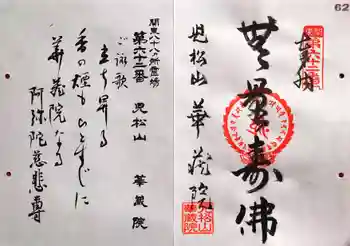 62
奉拝
無量寿佛
児松山 華蔵院
関東八十八ヵ所霊場
第六十二番 児松山 華蔵院
ご詠歌
立ち昇る
香の煙も ひとすじに
華蔵院なる
阿弥陀慈悲尊